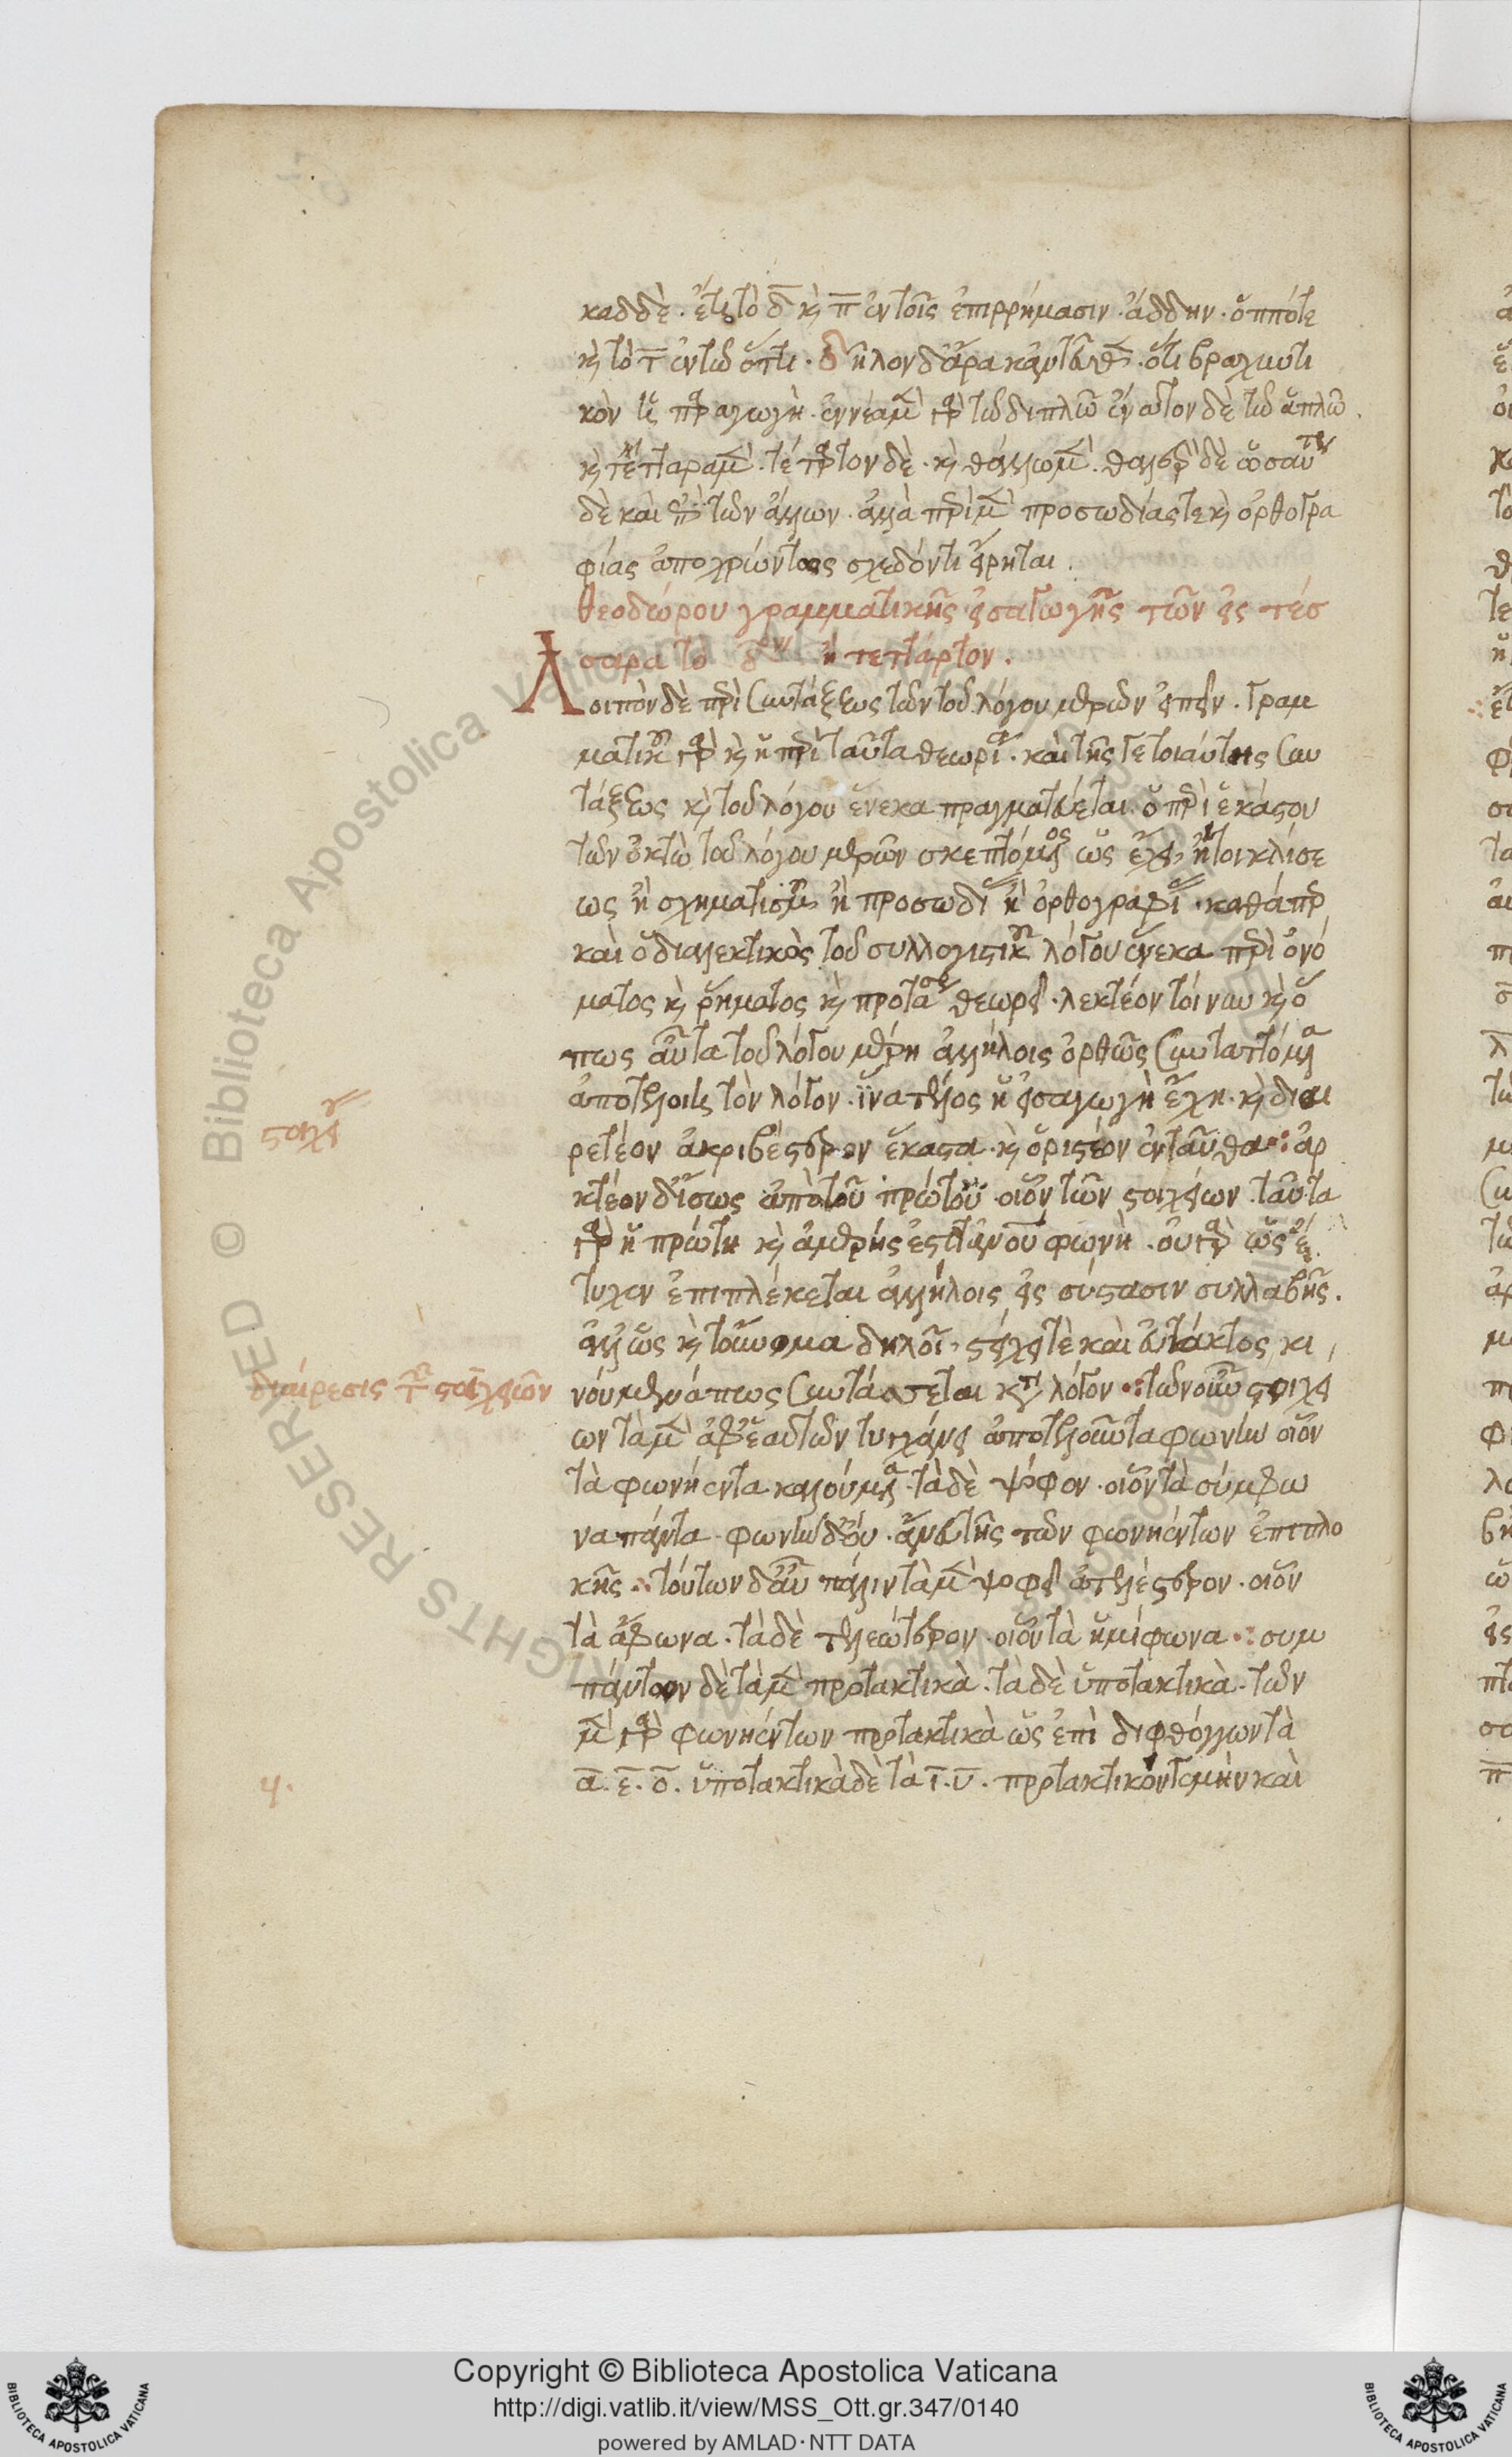 καδδὲ. ἔτι τὸ δ καὶ π ἐν τοῖς ἐπιρρήμασιν. ἄδδην. ὅππότε
καὶ τὸ τ ἐν τῷ ὅττι. δῆλον δ' ἄρα κἀνταῦθα. ὅτι βραχυντι
κὸν τις παραγωγή. ἐννέα μὲν γὰρ τῷ διπλῷ ἔνατον δὲ τῷ ἁπλῷ.
καὶ τέτταρα μὲν. τέταρτον δὲ. καὶ θάλλω μὲν. θαλερὸν δὲ ὡσαύτως
δὲ καὶ ἐπὶ τῶν ἄλλων. ἀλλὰ περὶ μὲν προσωδίας τε καὶ ὀρθογρα
φίας ἀποχρώντως σχεδόν τι εἴρηται.
θεοδώρου γραμματικῆς εἰσαγωγῆς τῶν εἰς τέσ
σαρα τὸ δον ἢ τέταρτον.
Λοιπὸν δὲ περὶ συντάξεως τῶν τοῦ λόγου μερῶν εἰπεῖν. γραμ
ματικοῦ γὰρ καὶ ἡ περὶ ταῦτα θεωρία. καὶ τῆς γε τοιαύτης συν
τάξεως καὶ τοῦ λόγου ἕνεκα πραγματεύεται ὁ περὶ ἑκάστου
τῶν ὀκτὼ τοῦ λόγου μερῶν σκεπτόμενος ὡς ἔχει ἤτοι κλίσε
ως ἢ σχηματισμοῦ ἢ προσωδίας ἢ ὀρθογραφίας. καθάπερ
καὶ ὁ διαλεκτικὸς τοῦ συλλογιστικοῦ λόγου ἕνεκα περὶ ὀνό
ματος καὶ ῥήματος καὶ προτάσεως θεωρεῖ. λεκτέον τοίνυν καὶ ὅ
πως αὖ τὰ τοῦ λόγου μέρη ἀλλήλοις ὀρθῶς συνταττόμενα
ἀποτελοίη τὸν λόγον. ἵνα τέλος ἡ εἰσαγωγὴ ἔχη. καὶ διαι
ρετέον ἀκριβέστερον ἕκαστα. καὶ ὁριστέον ἐνταῦθα. ἀρ
κτέον δ' ἴσως ἀπὸ τοῦ πρώτου. οἷον τῶν στοιχείων. ταῦτα
γὰρ ἡ πρώτη καὶ ἀμερής ἐστ' ἀνθρώπου φωνή. οὐ γὰρ ὡς ἔ
τυχεν ἐπιπλέκεται ἀλλήλοις εἰς σύστασιν συλλαβῆς.
ἀλλ' ὡς καὶ τοὔνομα δηλοῖ. στείχει τὲ καὶ εὐτάκτως κι
νούμενά πως συντάσσεται κατὰ λόγον. τῶν οὖν στοιχεί
ων τὰ μὲν ἀφ' ἑαυτῶν τυγχάνει ἀποτελοῦντα φωνὴν οἷον
τὰ φωνήεντα καλούμενα. τὰ δὲ ψόφον. οἷον τὰ σύμφω
να πάντα. φωνὴν δ' οὔ. ἄνευ τῆς τῶν φωνηέντων ἐπιπλο
κῆς. τούτων δ' αὖ πάλιν τὰ μὲν ψοφεῖ ἀτελέστερον. οἷον
τὰ ἄφωνα. τὰ δὲ τελεώτερον. οἷον τὰ ἡμίφωνα. συμ
πάντων δὲ τὰ μὲν προτακτικὰ. τὰ δὲ ὑποτακτικὰ. τῶν
μὲν γὰρ φωνηέντων προτακτικὰ ὡς ἐπὶ διφθόγγων τὰ
α. ε. ο. ὑποτακτικὰ δὲ τὰ ι. υ. προτακτικόν γε μὴν καὶ
διαίρεσις τῶν στοιχείων
Copyright © Biblioteca Apostolica Vaticana
http://digi.vatlib.it/view/MSS_Ott.gr.347/0140
powered by AMLAD·NTT DATA
BIBLIOTECA APOSTOLICA VATICANA
BIBLIOTECA APOSTOLICA VATICANA